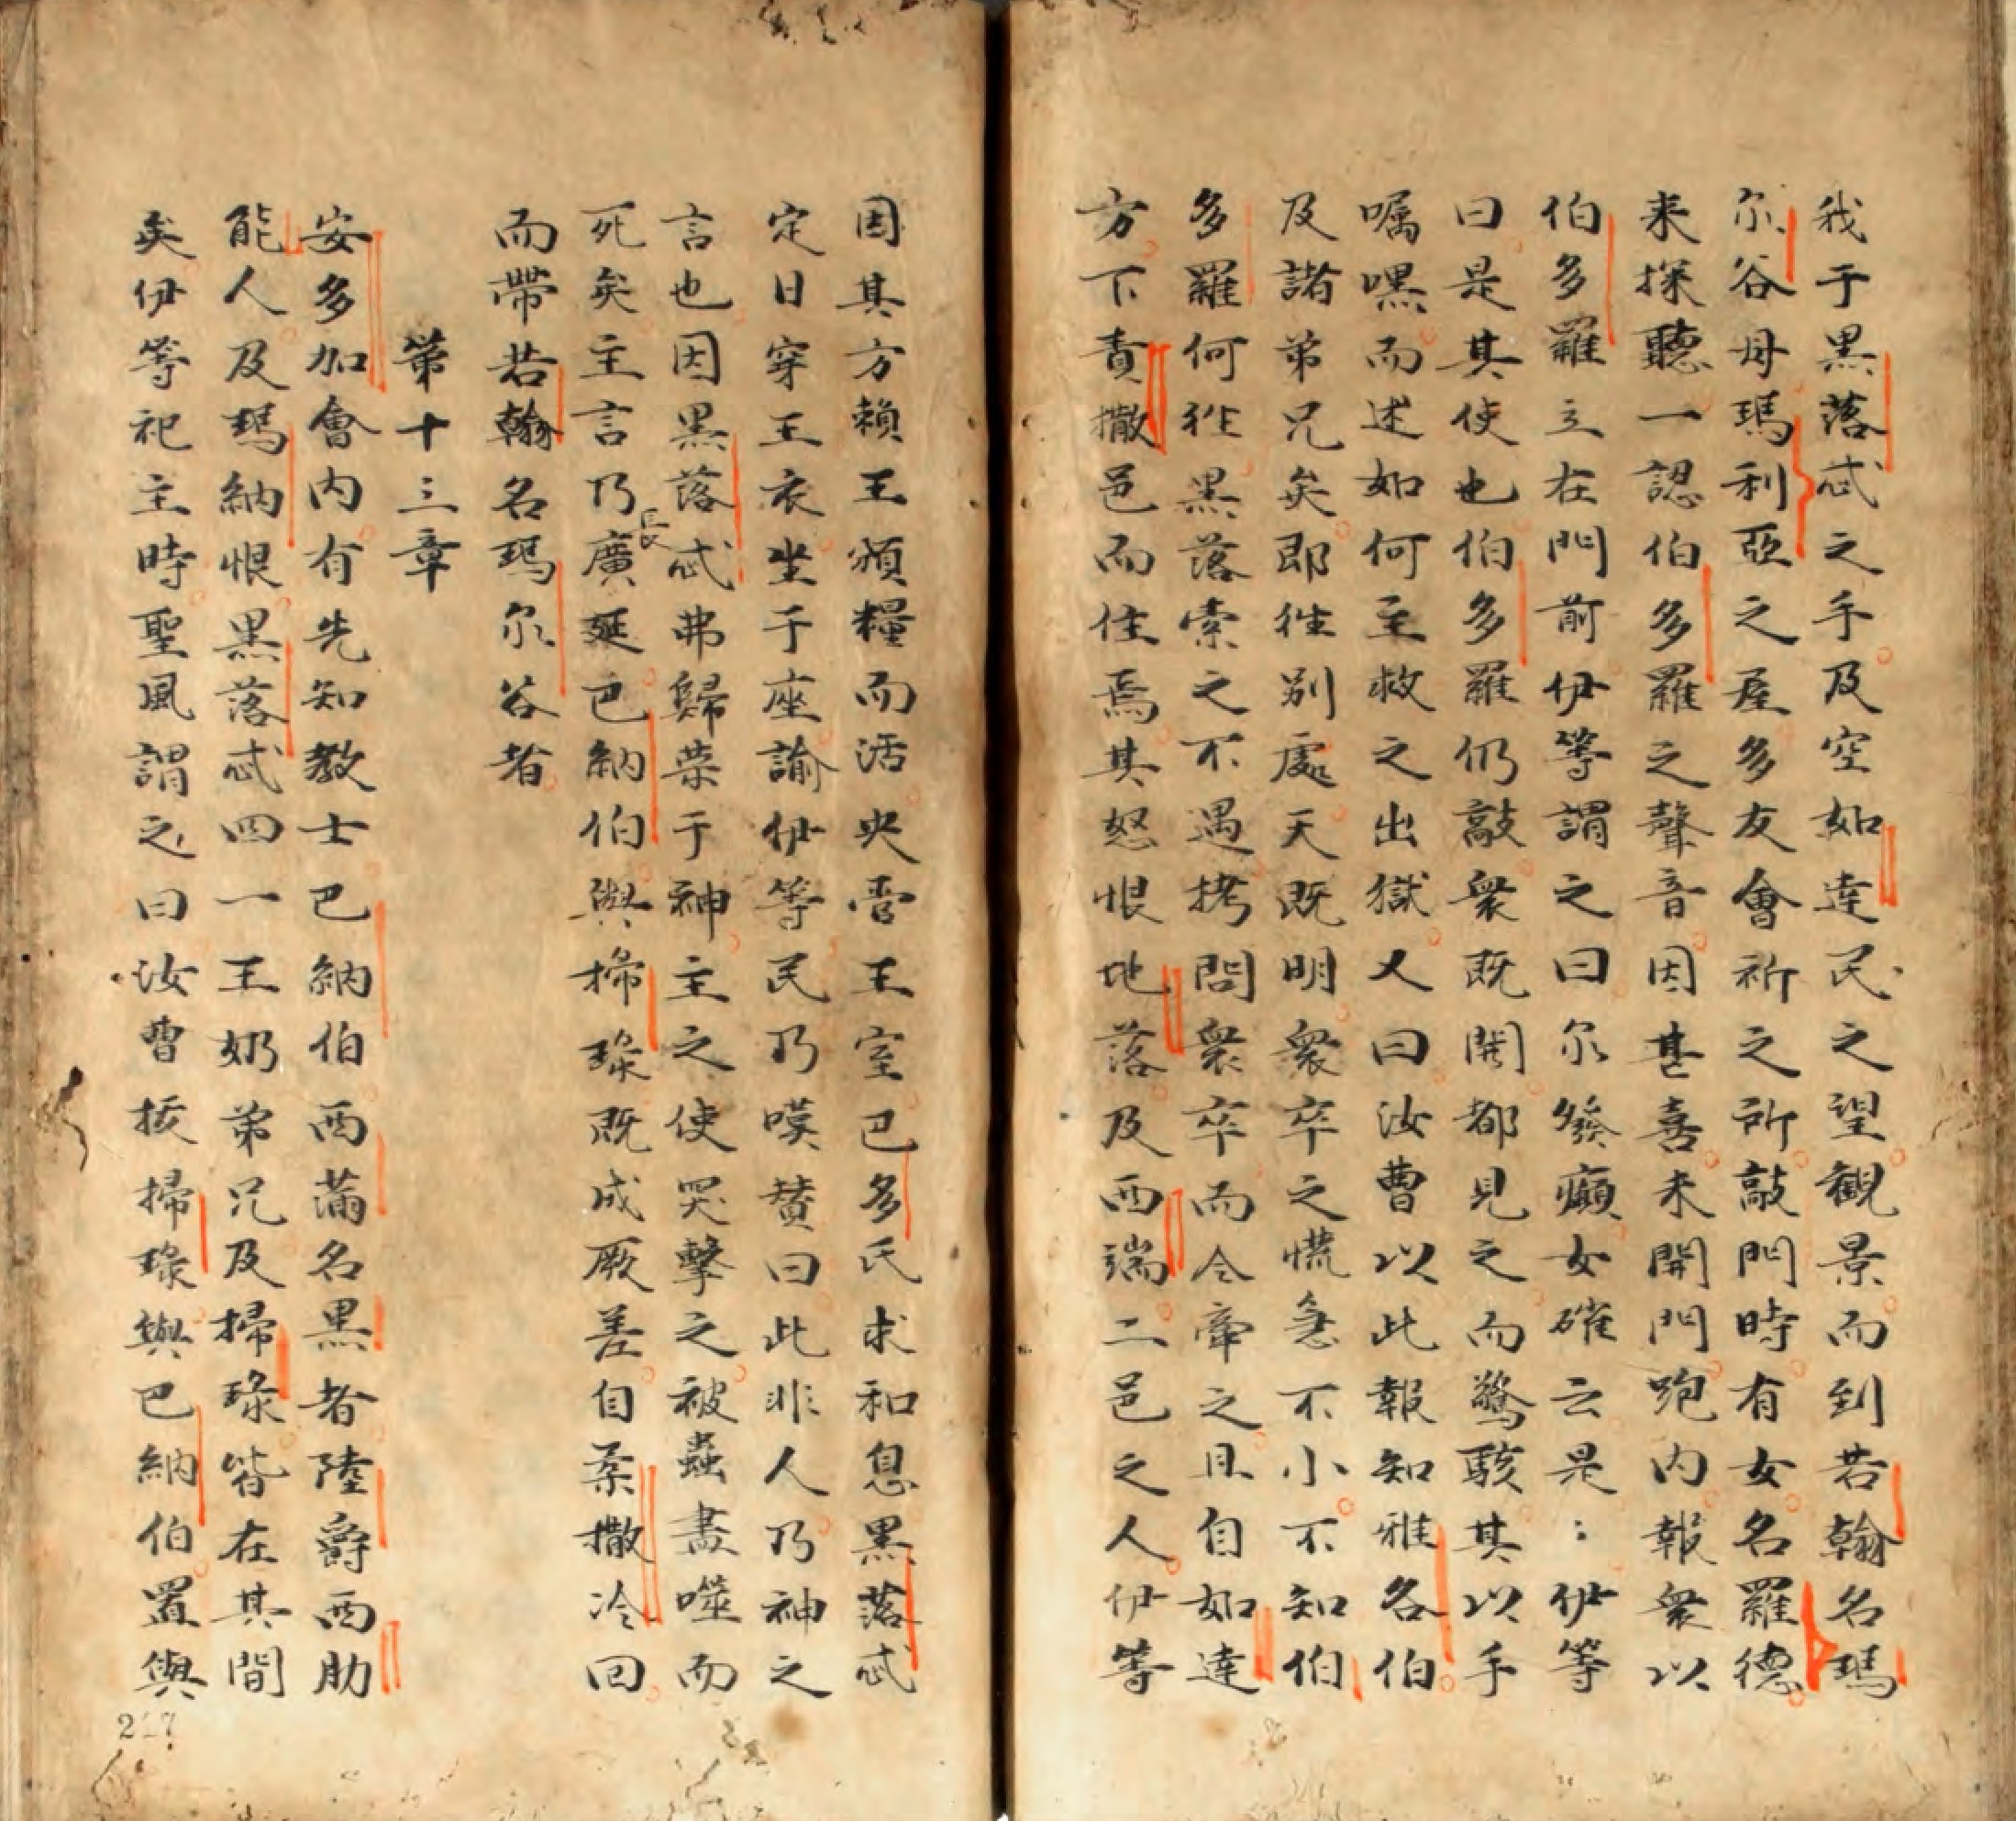 我于黑落忒之手及空如達民之望観景而到若翰名瑪
尔谷母瑪利亞之屋多友會祈之所敲門時有女名羅德
来探聽一認伯多羅之聲音因甚喜未開門跑内報衆以
伯多羅立在門前伊等謂之曰尔發癲女確云是:伊等
曰是其使也伯多羅仍敲衆既開都見之而驚駭其以手
嘱嘿而述如何主救之出獄又曰汝曹以此報知雅各伯
及諸弟兄矣即徃别處天既明衆卒之慌急不小不知伯
多羅何徃黑落索之不遇拷問衆卒而令牽之且自如達
方下責撒邑而住焉其怒恨地落及西端二邑之人伊等
因其方賴王頒糧而活央管王室巴多氏求和息黑落忒
定日穿王衣坐于座諭伊等民乃嘆賛曰此非人乃神之
言也因黑落忒弗歸荣于神主之使哭擊之被蟲盡噬而
死矣主言乃廣長延巴納伯與掃琭既成厥差自柔撒冷回
而帶若翰名瑪尔谷者
第十三章
安多加會内有先知教士巴納伯西滿名黑者陸爵西肋
能人及瑪納恨黑落忒四一王奶弟兄及掃琭皆在其間
矣伊等祀主時聖風謂之曰汝曹拔掃琭與巴納伯置與
217